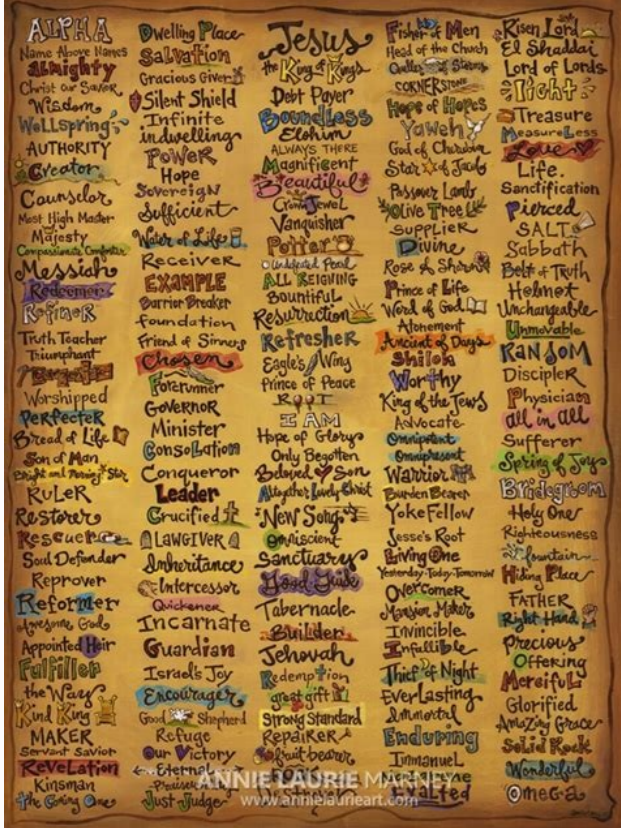 ALPHA
Name Above Names
Almighty
Christ our Savior
Wisdom
Wellspring
AUTHORITY
Creator
Counselor
Most High Master
Majesty
Compassionate Comforter
Messiah
Redeemer
Refiner
Truth Teacher
Triumphant
Worshipped
Perfecter
Bread of Life
Son of Man
Bright and Morning Star
RuLeR
Restorer
Rescuer
Soul Defender
Reprover
Reformer
Awesome God
Appointed Heir
Fulfiller
the Way
Kind King
MAKER
Servant Savior
Revelation
Kinsman
the Coming One
Dwelling Place
Salvation
Gracious Giver
Silent Shield
Infinite
indwelling
PoWeR
Hope
Sovereign
Sufficient
Water of Life
Receiver
EXAMPLE
Barrier Breaker
foundation
Friend of Sinners
Chosen
Forerunner
Governor
Minister
Consolation
Conqueror
Leader
Crucified
LAWGIVER
Inheritance
Intercessor
Quickener
Incarnate
Guardian
Israel's Joy
Encourager
Good Shepherd
Refuge
Our Victory
Eternal
Praised
Just Judge
Jesus
the King of Kings
Debt Payer
Boundless
Elohim
ALWAYS THERE
Magnificent
Beautiful
Crown Jewel
Vanquisher
Potter
Undefeated Pearl
ALL REIGNING
Bountiful
Resurrection
Refresher
Eagle's Wing
Prince of Peace
ROOT
I AM
Hope of Glory
Only Begotten
Beloved Son
Altogether Lovely Christ
New Song
Omniscient
Sanctuary
Good Guide
Tabernacle
Builder
Jehovah
Redemption
great gift
Strong Standard
Repairer
fruit-bearer
Fisher of Men
Head of the Church
CORNERSTONE
Hope of Hopes
Yaweh
God of Cherubim
Star of Jacob
Passover Lamb
Olive Tree
SUPPLIER
Divine
Rose of Sharon
Prince of Life
Word of God
Atonement
Ancient of Days
Shiloh
Worthy
King of the Jews
Advocate
Omnipotent
Omnipresent
Warrior
Burden Bearer
Yoke Fellow
Jesse's Root
Living One
Yesterday-Today-Tomorrow
Overcomer
Mansion Maker
Invincible
Infallible
Thief of Night
EverLasting
Immortal
Enduring
Immanuel
Exalted
Risen Lord
El Shaddai
Lord of Lords
Light
Treasure
MeasureLess
Love
Life.
Sanctification
Pierced
SALT
Sabbath
Belt of Truth
Helmet
Unchangeable
Unmovable
RANSOM
Discipler
Physician
all in all
Sufferer
Spring of Joy
Bridegroom
Holy One
Righteousness
fountain
Hiding Place
FATHER
Right Hand
Precious
Offering
Merciful
Glorified
Amazing Grace
Solid Rock
Wonderful
Omega
ANNIE LAURIE MARNEY
www.annielaurieart.com